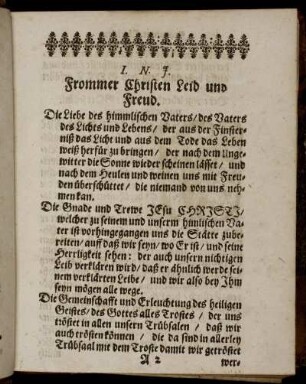 I. N. J.
Frommer Christen Leid und
Freud.
Die Liebe des himmlischen Vaters/ des Vaters
des Lichts und Lebens/ der aus der Finster-
niß das Licht und aus dem Tode das Leben
weiß herfür zu bringen/ der nach dem Unge-
witter die Sonne wieder scheinen lässet/ und
nach dem Heulen und weinen uns mit Freu-
den überschüttet/ die niemand von uns neh-
men kan.
Die Gnade und Trewe JEsu CHRISTI/
welcher zu seinem und unserm himlischen Va-
ter ist vorhingegangen uns die Stäte zube-
reiten/ auf daß wir seyn/ wo Er ist/ und seine
Herrligkeit sehen: der auch unsern nichtigen
Leib verklären wird/ daß er ähnlich werde sei-
nem verklärten Leibe/ und wir also bey Jhm
seyn mögen alle wege.
Die Gemeinschafft und Erleuchtung des heiligen
Geistes/ des Gottes alles Trostes/ der uns
tröstet in allen unsern Trübsalen/ daß wir
auch trösten können/ die da sind in allerley
Trübsaal mit dem Troste damit wir getröstet
A 2 wer-